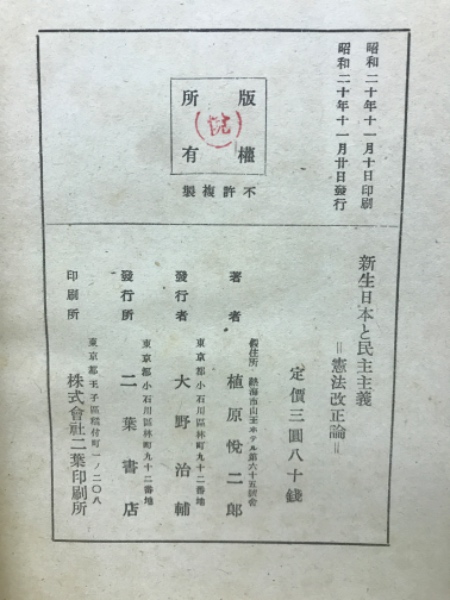 昭和二十年十一月十日印刷
昭和二十年十一月廿日發行
版權
所有
不許複製
新生日本と民主主義
＝憲法改正論＝
定價三圓八十錢
著者
假住所・熱海市山王ホテル第六十五號舍
植原悅二郎
發行者
東京都小石川區林町九十二番地
大野治輔
發行所
東京都小石川區林町九十二番地
二葉書店
印刷所
東京都王子區稻付町一ノ二〇八
株式會社二葉印刷所